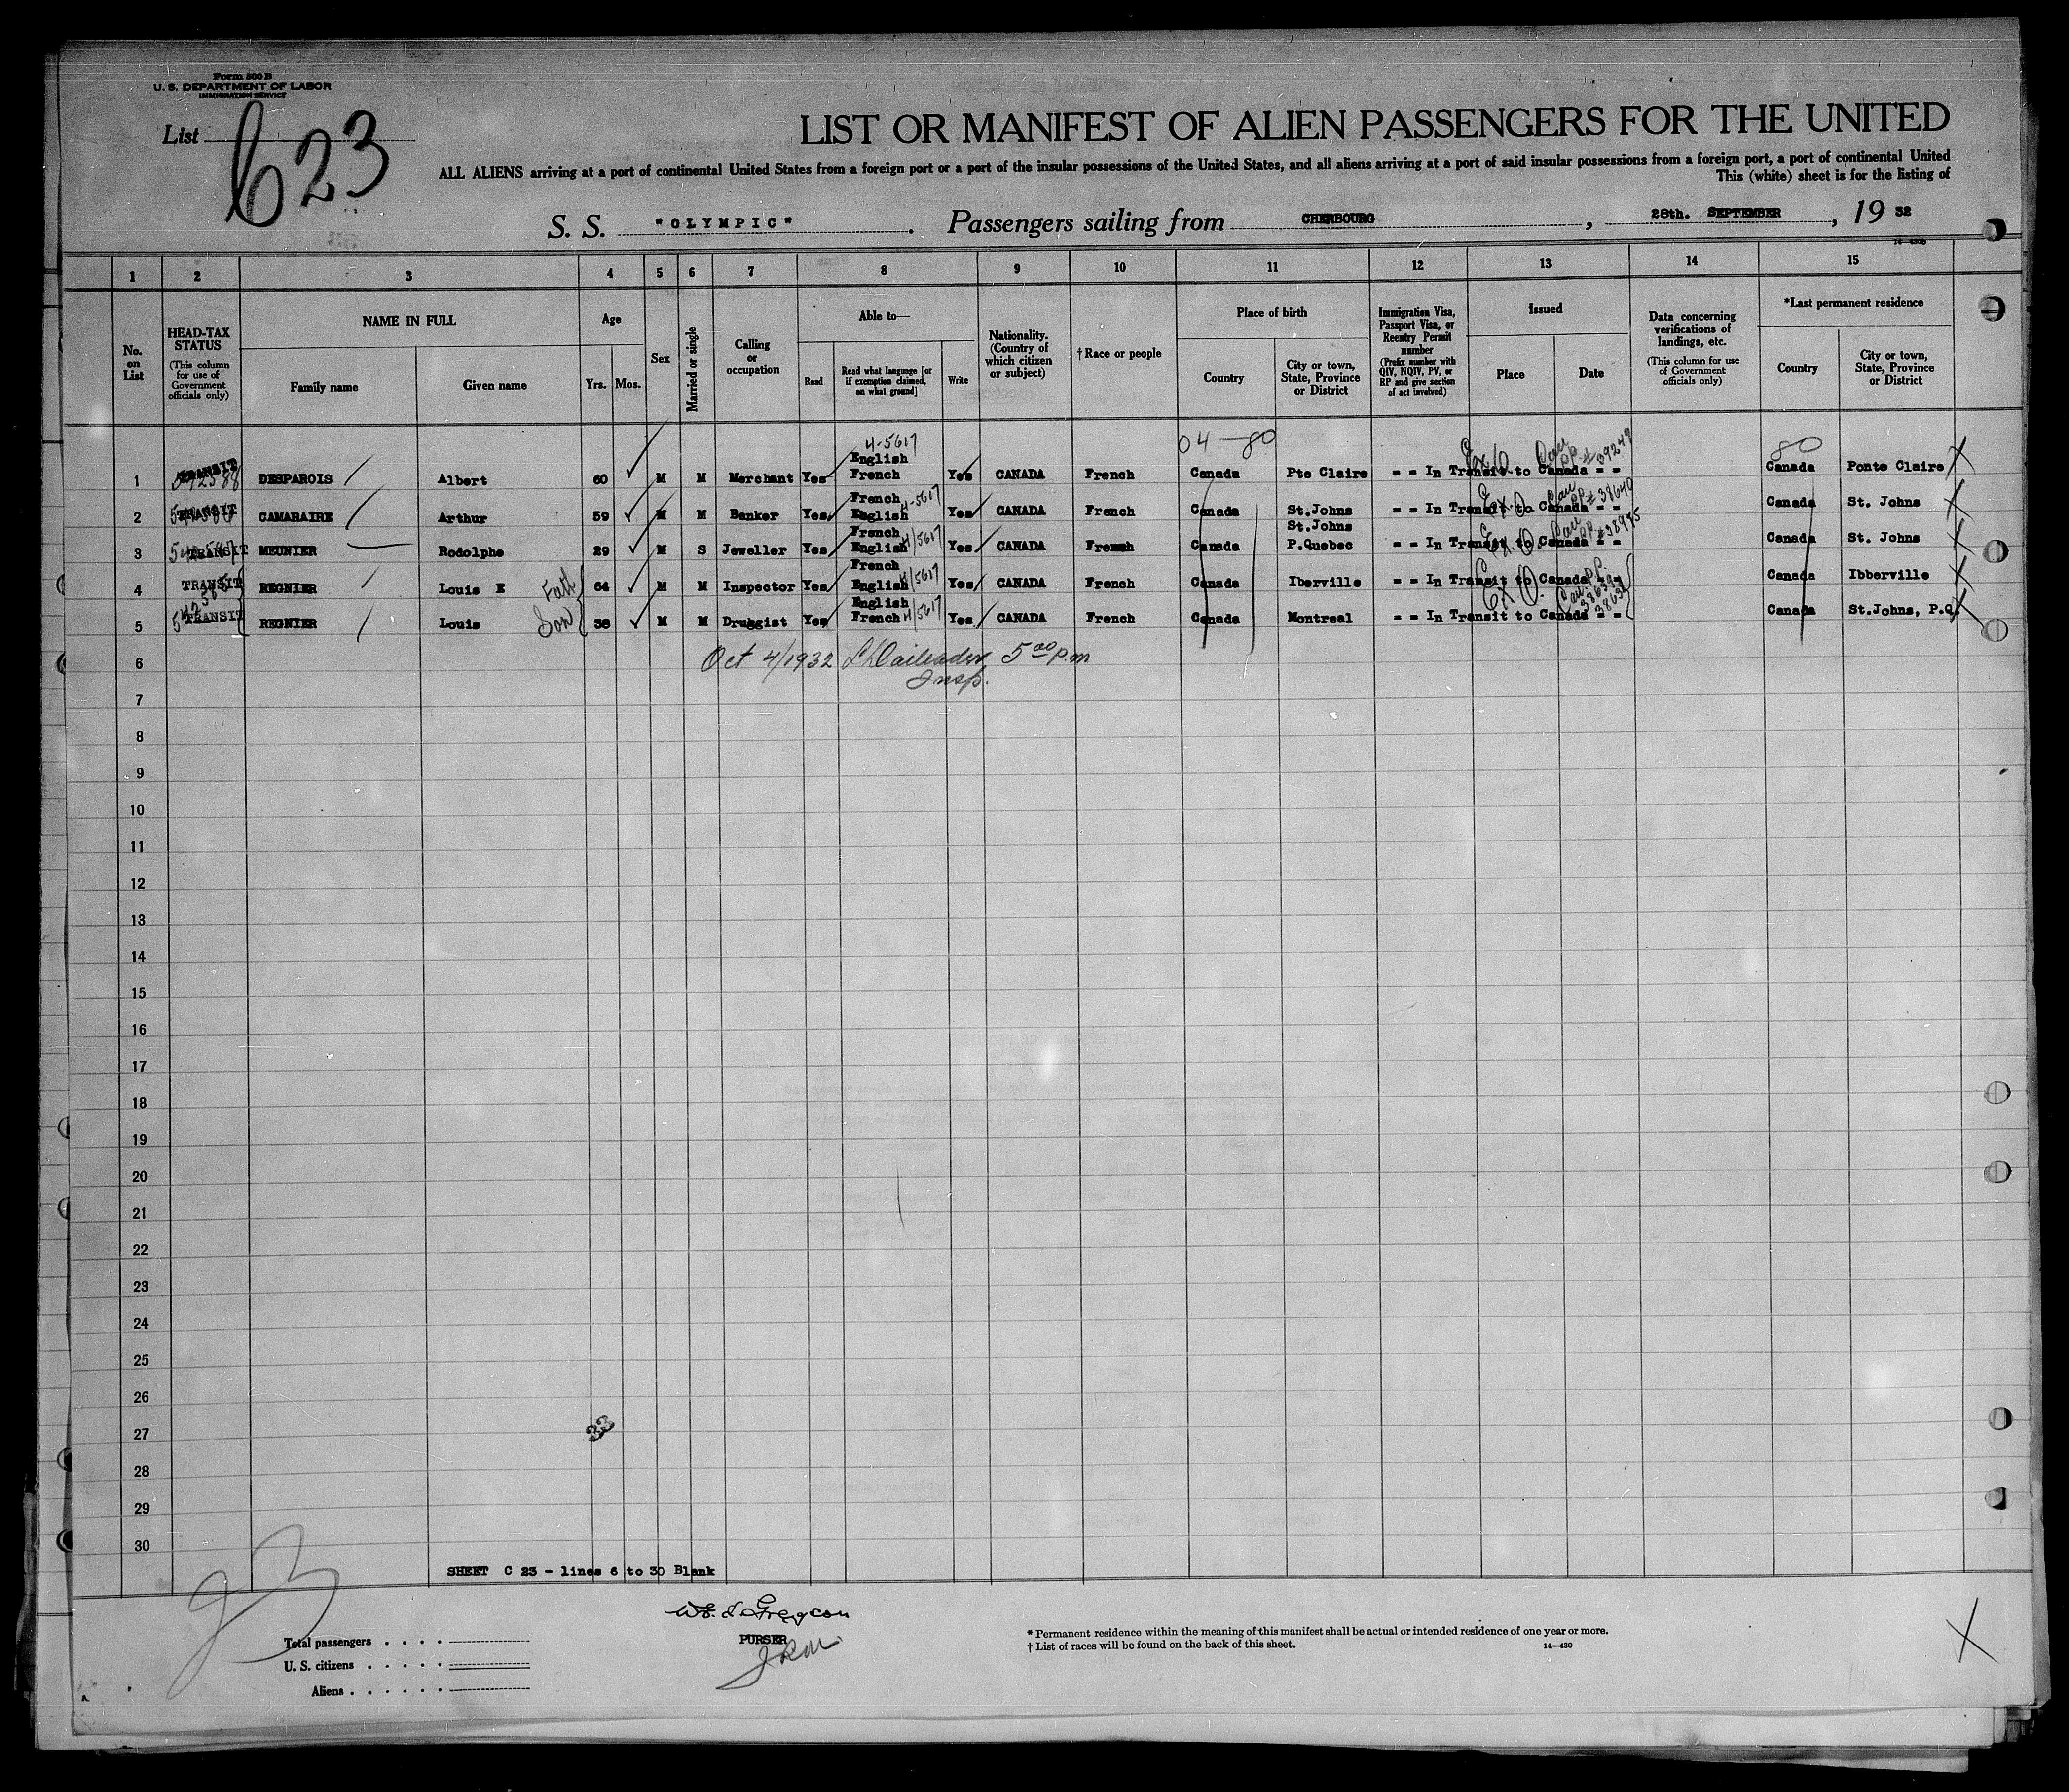 Form 500 B
U. S. DEPARTMENT OF LABOR
IMMIGRATION SERVICE
List C23
LIST OR MANIFEST OF ALIEN PASSENGERS FOR THE UNITED
ALL ALIENS arriving at a port of continental United States from a foreign port or a port of the insular possessions of the United States, and all aliens arriving at a port of said insular possessions from a foreign port, a port of continental United
This (white) sheet is for the listing of
S. S. "OLYMPIC". Passengers sailing from CHERBOURG, 28th. SEPTEMBER, 19 32
1 2 3 4 5 6 7 8 9 10 11 12 13 14 15
No. on List
HEAD-TAX STATUS (This column for use of Government officials only)
NAME IN FULL
Family name Given name
Age
Yrs. Mos.
Sex
Married or single
Calling or occupation
Able to—
Read Read what language [or if exemption claimed, on what ground] Write
Nationality. (Country of which citizen or subject)
†Race or people
Place of birth
Country City or town, State, Province or District
Immigration Visa, Passport Visa, or Reentry Permit number (Prefix number with QIV, NQIV, PV, or RP and give section of act involved)
Issued
Place Date
Data concerning verifications of landings, etc. (This column for use of Government officials only)
*Last permanent residence
Country City or town, State, Province or District
04 - 80 80
1 TRANSIT DESPAROIS Albert 60 M M Merchant Yes 4-5617 English French Yes CANADA French Canada Pte Claire - - In Transit to Canada - - Canada Ponte Claire
2 TRANSIT CAMARAIRE Arthur 59 M M Banker Yes French English 4-5617 Yes CANADA French Canada St.Johns - - In Transit to Canada - - Canada St. Johns
3 TRANSIT MEUNIER Rodolphe 29 M S Jeweller Yes French English 4/5617 Yes CANADA French Canada St.Johns P.Quebec - - In Transit to Canada - - Canada St. Johns
4 TRANSIT REGNIER Louis E Fath 64 M M Inspector Yes French English 4/5617 Yes CANADA French Canada Iberville - - In Transit to Canada - - Canada Ibberville
5 TRANSIT REGNIER Louis Son 38 M M Druggist Yes English French 4/5617 Yes CANADA French Canada Montreal - - In Transit to Canada - - Canada St.Johns, P.Q.
6 Oct 4/1932 5 00 p.m
Insp.
7
8
9
10
11
12
13
14
15
16
17
18
19
20
21
22
23
24
25
26
27 33
28
29
30
SHEET C 23 - lines 6 to 30 Blank
PURSER
Total passengers . . . .
U. S. citizens . . . . .
Aliens . . . . . .
* Permanent residence within the meaning of this manifest shall be actual or intended residence of one year or more.
† List of races will be found on the back of this sheet.
14—430